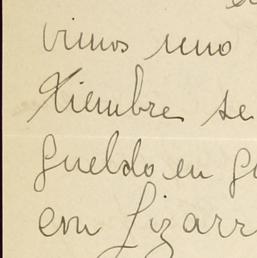 vimos uno
tiembre se
gueldo en g
con Lizarr